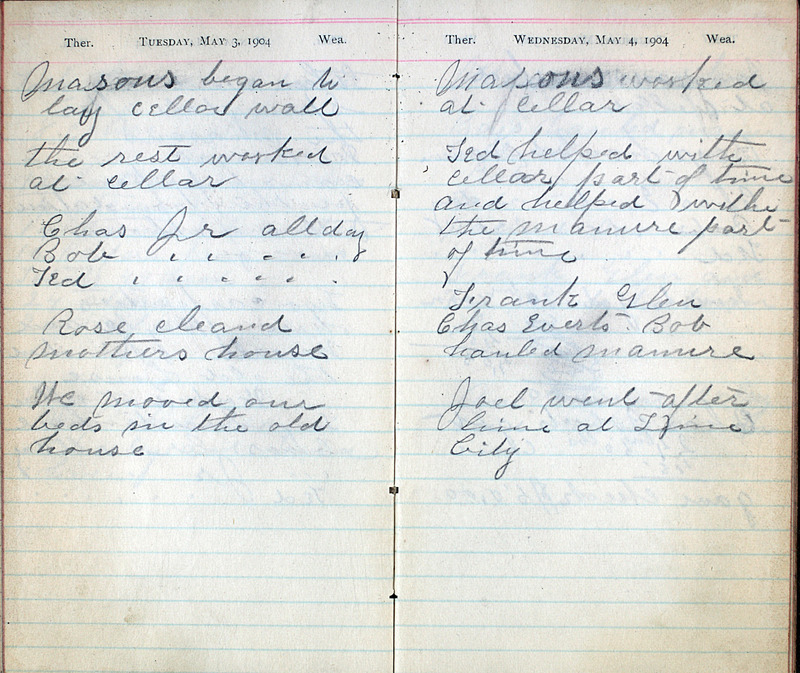 Ther. Tuesday, May 3, 1904 Wea.
Masons began to
lay cellar wall
the rest worked
at cellar
Chas Jr all day
Bob " " " "
Ted " " " " "
Rose cleand
mothers house
We moved our
beds in the old
house
Ther. Wednesday, May 4, 1904 Wea.
Masons worked
at cellar
Ted helped with
cellar part of time
and helped withe
the manure part
of time
Frank Glen
Chas Everts Bob
hauled manure
Joel went after
lime at Lime
City